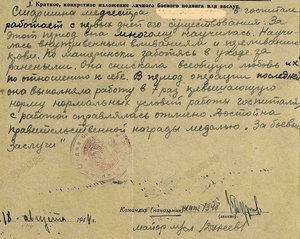 I. Краткое, конкретное изложение личного боевого подвига или заслуг.
Старшая медсестра. В госпитале
работает с первых дней его существования. За
этот период она многому научилась. Научи-
лась внутривенным вливаниям и переливанию
крови. По матерински заботлива в уходе за
ранеными. Она снискала всеобщую любовь их
по отношению к себе. В период операции последней
она выполняла работу в 7 раз превышающую
норму нормальных условий работы госпиталя
с работой справлялась отлично. Достойна
правительственной награды медалью „За боевые
Заслуги"
Командир (начальник)
майор м/сл
18 " августа 1944 г.